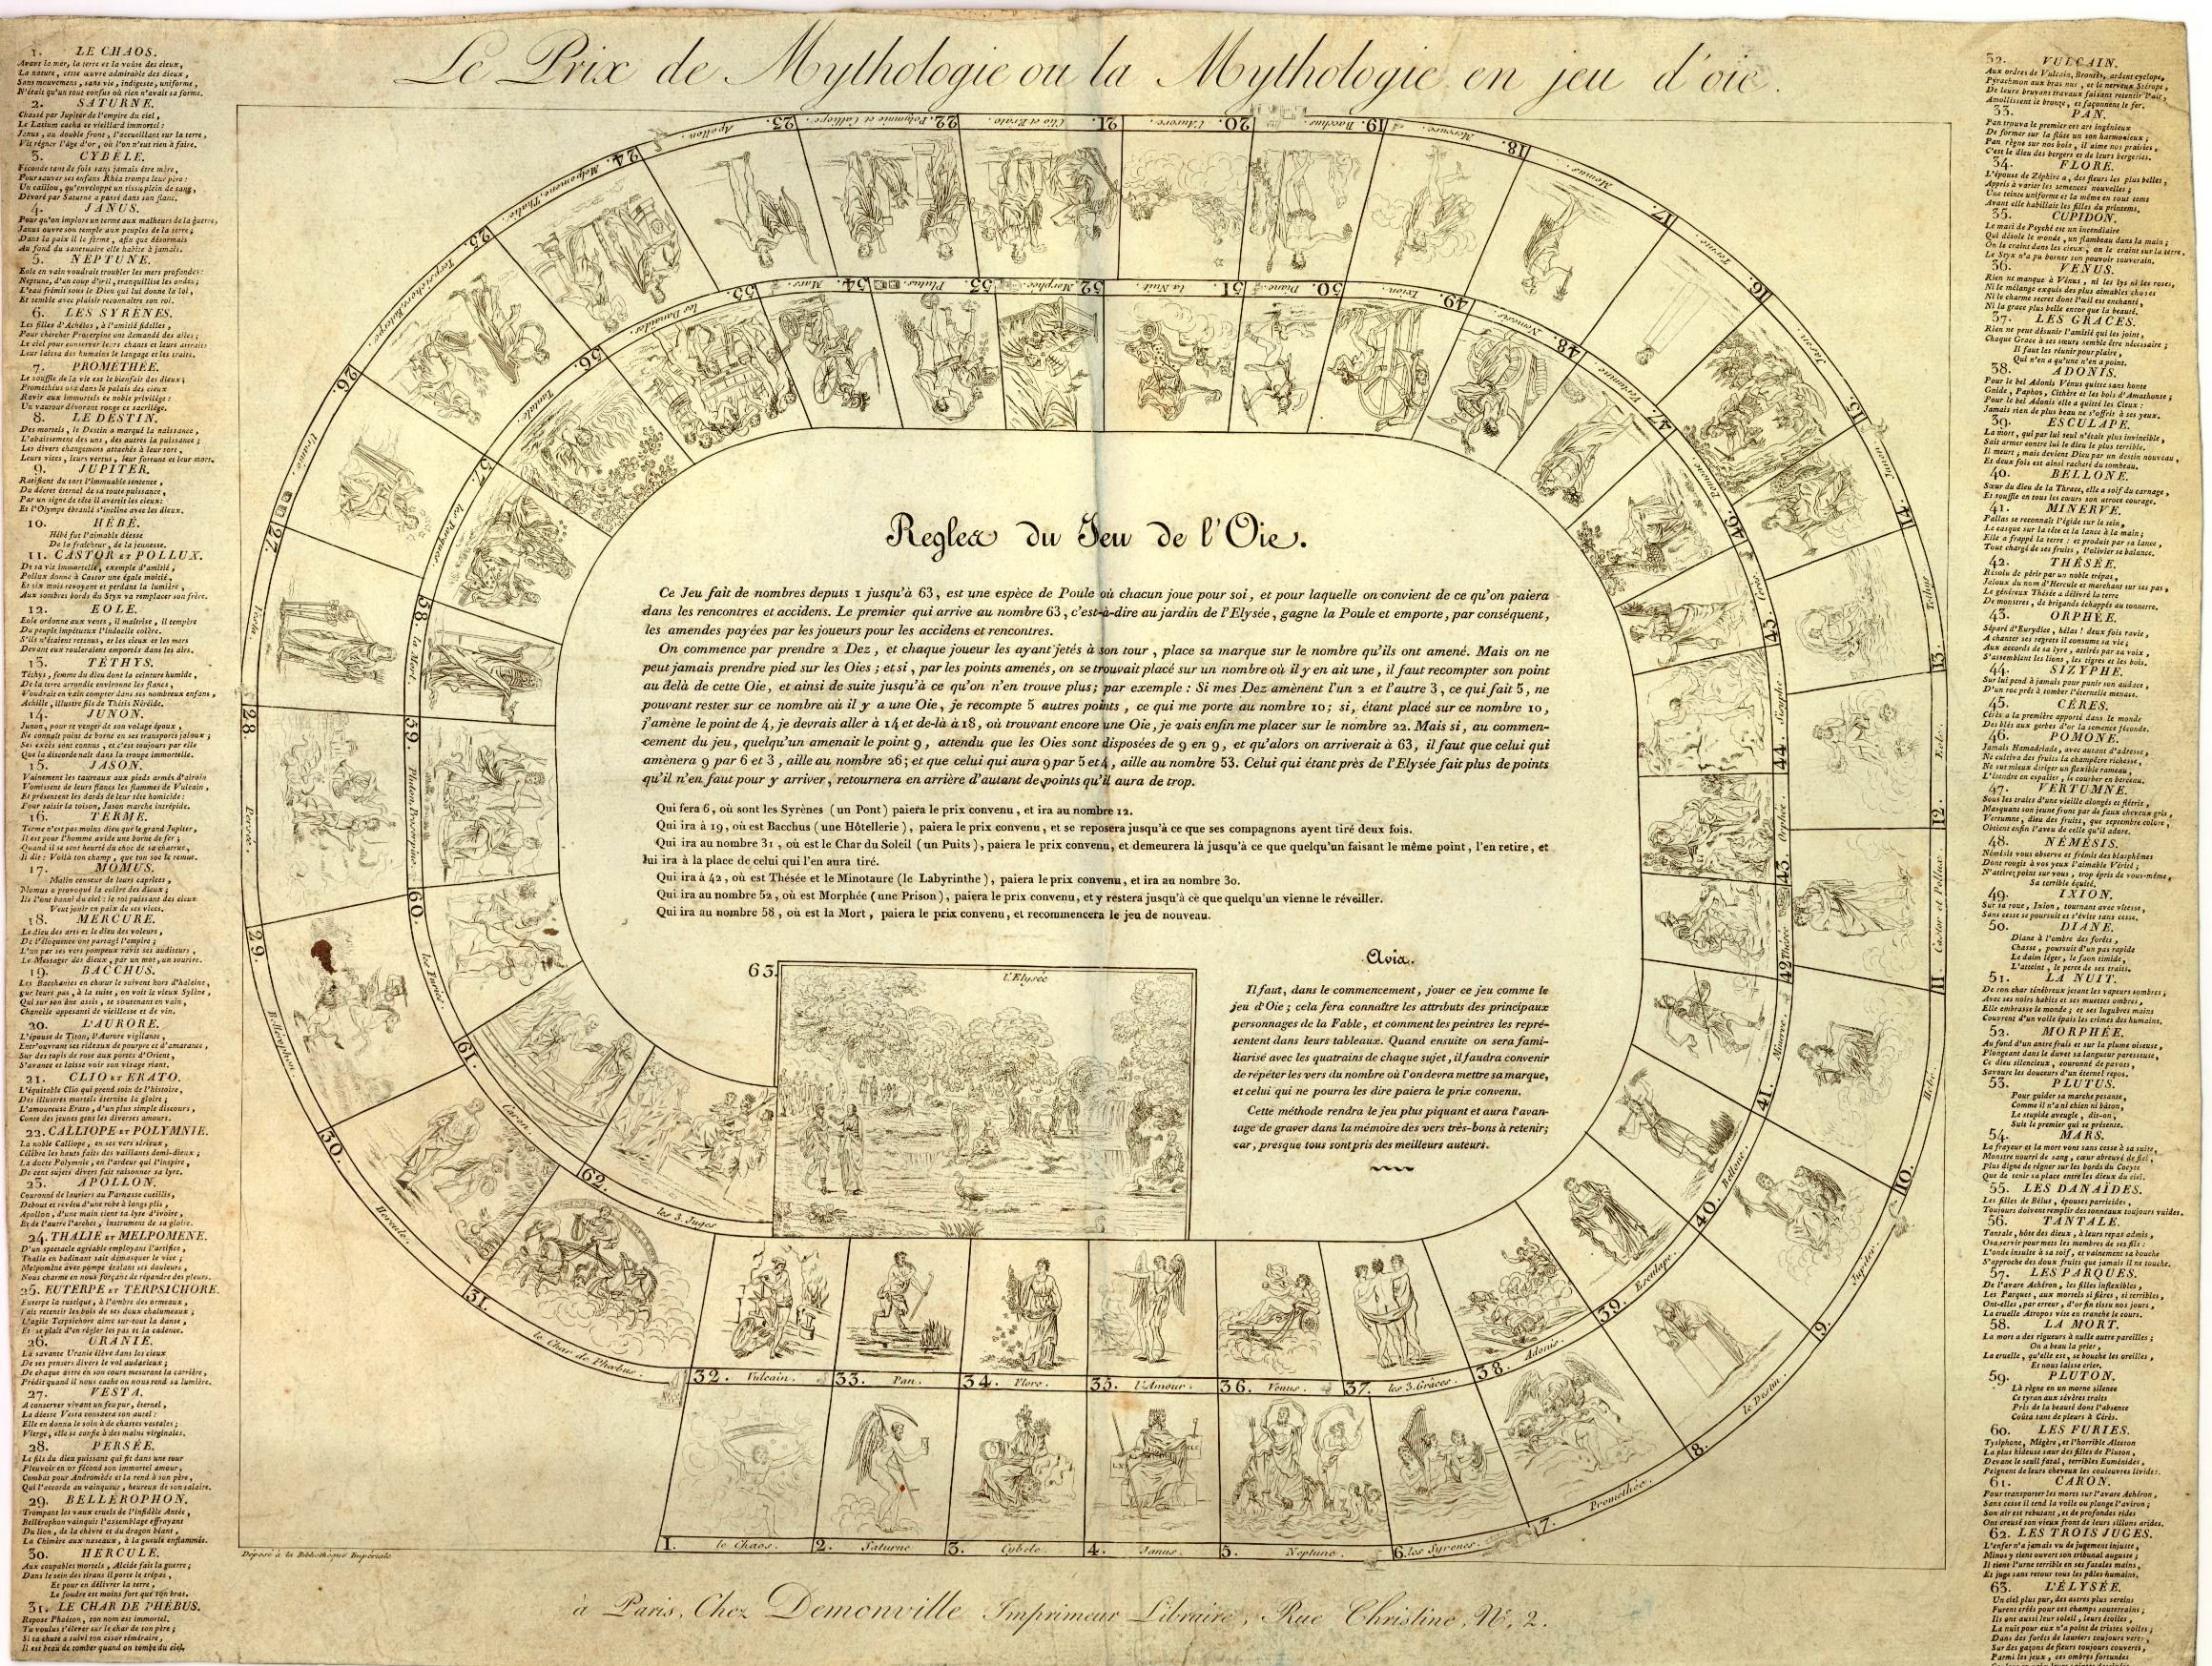 Le Prix de Mythologie ou la Mythologie en jeu d'oie.
1. LE CHAOS.
Avant la mer, la terre et la voûte des cieux,
La nature, cette œuvre admirable des dieux,
Sans mouvemens, sans vie, indigeste, uniforme,
N'était qu'un tout confus où rien n'avait sa forme.
2. SATURNE.
Chassé par Jupiter de l'empire du ciel,
Le Latium cacha ce vieillard immortel:
Janus, au double front, l'accueillant sur la terre,
Vit régner l'âge d'or, où l'on n'eut rien à faire.
3. CYBÈLE.
Féconde tant de fois sans jamais être mère,
Pour sauver ses enfans Rhéa trompe leur père:
Un caillou, qu'enveloppe un tissu plein de sang,
Dévoré par Saturne a passé dans son flanc.
4. JANUS.
Pour qu'on implore un terme aux malheurs de la guerre,
Janus ouvre son temple aux peuples de la terre;
Dans la paix il le ferme, afin que désormais
Au fond du sanctuaire elle habite à jamais.
5. NEPTUNE.
Eole en vain voudrait troubler les mers profondes:
Neptune, d'un coup d'œil, tranquillise les ondes;
L'eau frémit sous le Dieu qui lui donne la loi,
Et semble avec plaisir reconnaître son roi.
6. LES SYRÈNES.
Les filles d'Achélos, à l'amitié fidelles,
Pour chercher Proserpine ont demandé des ailes;
Le ciel pour conserver leurs chants et leurs attraits
Leur laissa des humains le langage et les traits.
7. PROMÉTHÉE.
Le souffle de la vie est le bienfait des dieux;
Prométhéus osa dans le palais des cieux
Ravir aux immortels ce noble privilége:
Un vautour dévorant ronge ce sacrilége.
8. LE DESTIN.
Des mortels, le Destin a marqué la naissance,
L'abaissement des uns, des autres la puissance;
Les divers changemens attachés à leur sort,
Leurs vices, leurs vertus, leur fortune et leur mort.
9. JUPITER.
Ratifiant du sort l'immuable sentence,
Du décret éternel de sa toute puissance,
Par un signe de tête il avertit les cieux:
Et l'Olympe ébranlé s'incline avec les dieux.
10. HÉBÉ.
Hébé fut l'aimable déesse
De la fraîcheur, de la jeunesse.
11. CASTOR ET POLLUX.
De sa vie immortelle, exemple d'amitié,
Pollux donne à Castor une égale moitié,
Et six mois revoyant et perdant la lumière,
Aux sombres bords du Styx va remplacer son frère.
12. EOLE.
Eole ordonne aux vents, il maîtrise, il tempère
Du peuple impétueux l'indocile colère.
S'ils n'étaient retenus, et les cieux et les mers
Devant eux rouleraient emportés dans les airs.
13. TÉTHYS.
Téthys, femme du dieu dont la ceinture humide,
De la terre arrondie environne les flancs,
Voudrait en vain compter dans ses nombreux enfans,
Achille, illustre fils de Thétis Néréide.
14. JUNON.
Junon, pour se venger de son volage époux,
Ne connaît point de borne en ses transports jaloux;
Ses excès sont connus, et c'est toujours par elle
Que la discorde naît dans la troupe immortelle.
15. JASON.
Vainement les taureaux aux pieds armés d'airain
Vomissent de leurs flancs les flammes de Vulcain,
Et présentent les dards de leur tête homicide:
Pour saisir la toison, Jason marche intrépide.
16. TERME.
Terme n'est pas moins dieu que le grand Jupiter,
Il est pour l'homme avide une borne de fer;
Quand il se sent heurté du choc de sa charrue,
Il dit: Voilà ton champ, que ton soc le remue.
17. MOMUS.
Malin censeur de leurs caprices,
Momus a provoqué la colère des dieux;
Ils l'ont banni du ciel: le roi puissant des cieux
Veut jouir en paix de ses vices.
18. MERCURE.
Le dieu des arts et le dieu des voleurs,
De l'éloquence ont partagé l'empire;
L'un par ses vers pompeux ravit ses auditeurs,
Le Messager des dieux, par un mot, un sourire.
19. BACCHUS.
Les Bacchantes en chœur le suivent hors d'haleine,
Sur leurs pas, à la suite, on voit le vieux Sylène,
Qui sur son âne assis, se soutenant en vain,
Chancèle appesanti de vieillesse et de vin.
20. L'AURORE.
L'épouse de Titon, l'Aurore vigilante,
Entr'ouvrant ses rideaux de pourpre et d'amarante,
Sur des tapis de rose aux portes d'Orient,
S'avance et laisse voir son visage riant.
21. CLIO ET ERATO.
L'équitable Clio qui prend soin de l'histoire,
Des illustres mortels éternise la gloire;
L'amoureuse Erato, d'un plus simple discours,
Conte des jeunes gens les diverses amours.
22. CALLIOPE ET POLYMNIE.
La noble Calliope, en ses vers sérieux,
Célèbre les hauts faits des vaillants demi-dieux;
La docte Polymnie, en l'ardeur qui l'inspire,
De cent sujets divers fait raisonner sa lyre.
23. APOLLON.
Couronné de lauriers au Parnasse cueillis,
Debout et revêtu d'une robe à longs plis,
Apollon, d'une main tient sa lyre d'ivoire,
Et de l'autre l'archet, instrument de sa gloire.
24. THALIE ET MELPOMENE.
D'un spectacle agréable employant l'artifice,
Thalie en badinant sait démasquer le vice;
Melpomène avec pompe étalant ses douleurs,
Nous charme en nous forçant de répandre des pleurs.
25. EUTERPE ET TERPSICHORE.
Euterpe la rustique, à l'ombre des ormeaux,
Fait retentir les bois de ses doux chalumeaux;
L'agile Terpsichore aime sur-tout la danse,
Et se plaît d'en régler les pas et la cadence.
26. URANIE.
La savante Uranie élève dans les cieux
De ses pensers divers le vol audacieux;
De chaque astre en son cours mesurant la carrière,
Prédit quand il nous cache ou nous rend sa lumière.
27. VESTA.
A conserver vivant un feu pur, éternel,
La déesse Vesta consacra son autel:
Elle en donna le soin à de chastes vestales;
Vierge, elle se confie à des mains virginales.
28. PERSÉE.
Le fils du dieu puissant qui fit dans une tour
Pleuvoir en or fécond son immortel amour,
Combat pour Andromède et la rend à son père,
Qui l'accorde au vainqueur, heureux de son salaire.
29. BELLÉROPHON.
Trompant les vœux cruels de l'infidèle Antée,
Bellérophon vainquit l'assemblage effrayant
Du lion, de la chèvre et du dragon béant,
La Chimère aux naseaux, à la gueule enflammée.
30. HERCULE.
Aux coupables mortels, Alcide fait la guerre;
Dans le sein des tirans il porte le trépas,
Et pour en délivrer la terre,
Le foudre est moins fort que son bras.
31. LE CHAR DE PHÉBUS.
Repose Phaéton, ton nom est immortel.
Tu voulus t'élever sur le char de ton père;
Si ta chute a suivi ton essor téméraire,
Il est beau de tomber quand on tombe du ciel.
1. le Chaos.
2. Saturne
3. Cybèle.
4. Janus.
5. Neptune.
6. les Syrenes.
7. Promethée.
8. le Destin.
9. Jupiter.
10. Hebé.
11. Castor et Pollux.
12. Eole.
13. Tethys.
14. Junon.
15. Jason.
16. Terme.
17. Momus.
18. Mercure.
19. Bacchus.
20. l'Aurore.
21. Clio et Erato.
22. Polymnie et Calliope.
23. Apollon.
24. Melpomene. Thalie.
25. Terpsichore. Euterpe.
26. Uranie.
27. Vesta.
28. Persée.
29. Bellerophon.
30. Hercule.
31. le Char de Phœbus.
32. Vulcain.
33. Pan.
34. Flore.
35. l'Amour.
36. Venus.
37. les 3. Grâces.
38. Adonis.
39. Esculape.
40. Bellone.
41. Minerve.
42. Thesée
43. Orphée.
44. Sisyphe
45. Cerès.
46. Pomone.
47. Vertumne.
48. Nemesis.
49. Ixion.
50. Diane.
51. la Nuit.
52. Morphée.
53. Plutus.
54. Mars.
55. les Danaïdes.
56. Tantale.
57. les Parques.
58. la Mort.
59. Pluton. Proserpine.
60. les Furies.
61. Caron.
62. les 3. Juges
63.
l'Elysée
Regles du Jeu de l'Oie.
Ce Jeu fait de nombres depuis 1 jusqu'à 63, est une espèce de Poule où chacun joue pour soi, et pour laquelle on convient de ce qu'on paiera
dans les rencontres et accidens. Le premier qui arrive au nombre 63, c'est-à-dire au jardin de l'Elysée, gagne la Poule et emporte, par conséquent,
les amendes payées par les joueurs pour les accidens et rencontres.
On commence par prendre 2 Dez, et chaque joueur les ayant jetés à son tour, place sa marque sur le nombre qu'ils ont amené. Mais on ne
peut jamais prendre pied sur les Oies; et si, par les points amenés, on se trouvait placé sur un nombre où il y en ait une, il faut recompter son point
au delà de cette Oie, et ainsi de suite jusqu'à ce qu'on n'en trouve plus; par exemple: Si mes Dez amènent l'un 2 et l'autre 3, ce qui fait 5, ne
pouvant rester sur ce nombre où il y a une Oie, je recompte 5 autres points, ce qui me porte au nombre 10; si, étant placé sur ce nombre 10,
j'amène le point de 4, je devrais aller à 14 et de-là à 18, où trouvant encore une Oie, je vais enfin me placer sur le nombre 22. Mais si, au commen-
cement du jeu, quelqu'un amenait le point 9, attendu que les Oies sont disposées de 9 en 9, et qu'alors on arriverait à 63, il faut que celui qui
amènera 9 par 6 et 3, aille au nombre 26; et que celui qui aura 9 par 5 et 4, aille au nombre 53. Celui qui étant près de l'Elysée fait plus de points
qu'il n'en faut pour y arriver, retournera en arrière d'autant de points qu'il aura de trop.
Qui fera 6, où sont les Syrènes (un Pont) paiera le prix convenu, et ira au nombre 12.
Qui ira à 19, où est Bacchus (une Hôtellerie), paiera le prix convenu, et se reposera jusqu'à ce que ses compagnons ayent tiré deux fois.
Qui ira au nombre 31, où est le Char du Soleil (un Puits), paiera le prix convenu, et demeurera là jusqu'à ce que quelqu'un faisant le même point, l'en retire, et
lui ira à la place de celui qui l'en aura tiré.
Qui ira à 42, où est Thésée et le Minotaure (le Labyrinthe), paiera le prix convenu, et ira au nombre 30.
Qui ira au nombre 52, où est Morphée (une Prison), paiera le prix convenu, et y restera jusqu'à ce que quelqu'un vienne le réveiller.
Qui ira au nombre 58, où est la Mort, paiera le prix convenu, et recommencera le jeu de nouveau.
Avis.
Il faut, dans le commencement, jouer ce jeu comme le
jeu d'Oie; cela fera connaître les attributs des principaux
personnages de la Fable, et comment les peintres les repré-
sentent dans leurs tableaux. Quand ensuite on sera fami-
liarisé avec les quatrains de chaque sujet, il faudra convenir
de répéter les vers du nombre où l'on devra mettre sa marque,
et celui qui ne pourra les dire paiera le prix convenu.
Cette méthode rendra le jeu plus piquant et aura l'avan-
tage de graver dans la mémoire des vers très-bons à retenir;
car, presque tous sont pris des meilleurs auteurs.
32. VULCAIN.
Aux ordres de Vulcain, Brontès, ardent cyclope,
Pyracmon aux bras nus, et le nerveux Stérope,
De leurs bruyans travaux faisant retentir l'air,
Amollissent le bronze, et façonnent le fer.
33. PAN.
Pan trouva le premier cet art ingénieux
De former sur la flûte un son harmonieux;
Pan règne sur nos bois, il aime nos prairies,
C'est le dieu des bergers et de leurs bergeries.
34. FLORE.
L'épouse de Zéphire a, des fleurs les plus belles,
Appris à varier les semences nouvelles;
Une teinte uniforme et la même en tout tems
Avant elle habillait les filles du printems.
35. CUPIDON.
Le mari de Psyché est un incendiaire
Qui désole le monde, un flambeau dans la main;
On le craint dans les cieux, on le craint sur la terre,
Le Styx n'a pu borner son pouvoir souverain.
36. VENUS.
Rien ne manque à Vénus, ni les lys ni les roses,
Ni le mélange exquis des plus aimables choses
Ni le charme secret dont l'œil est enchanté,
Ni la grace plus belle encor que la beauté.
37. LES GRACES.
Rien ne peut désunir l'amitié qui les joint,
Chaque Grace à ses sœurs semble être nécessaire;
Il faut les réunir pour plaire,
Qui n'en a qu'une n'en a point.
38. ADONIS.
Pour le bel Adonis Vénus quitte sans honte
Gnide, Paphos, Cithère et les bois d'Amathonte;
Pour le bel Adonis elle a quitté les Cieux:
Jamais rien de plus beau ne s'offrit à ses yeux.
39. ESCULAPE.
La mort, qui par lui seul n'était plus invincible,
Sait armer contre lui le dieu le plus terrible.
Il meurt; mais devient Dieu par un destin nouveau,
Et deux fois est ainsi racheté du tombeau.
40. BELLONE.
Sœur du dieu de la Thrace, elle a soif du carnage,
Et souffle en tous les cœurs son atroce courage.
41. MINERVE.
Pallas se reconnaît l'égide sur le sein,
Le casque sur la tête et la lance à la main;
Elle a frappé la terre: et produit par sa lance,
Tout chargé de ses fruits, l'olivier se balance.
42. THÉSÉE.
Résolu de périr par un noble trépas,
Jaloux du nom d'Hercule et marchant sur ses pas,
Le généreux Thésée a délivré la terre
De monstres, de brigands échappés au tonnerre.
43. ORPHÉE.
Séparé d'Eurydice, hélas! deux fois ravie,
A chanter ses regrets il consume sa vie;
Aux accords de sa lyre, attirés par sa voix,
S'assemblent les lions, les tigres et les bois.
44. SIZYPHE.
Sur lui pend à jamais pour punir son audace,
D'un roc prêt à tomber l'éternelle menace.
45. CÉRES.
Cérès a la première apporté dans le monde
Des blés aux gerbes d'or la semence féconde.
46. POMONE.
Jamais Hamadriade, avec autant d'adresse,
Ne cultiva des fruits la champêtre richesse,
Ne sut mieux diriger un flexible rameau,
L'étendre en espalier, le courber en berceau.
47. VERTUMNE.
Sous les traits d'une vieille alongés et flétris,
Masquant son jeune front par de faux cheveux gris,
Vertumne, dieu des fruits, que septembre colore,
Obtient enfin l'aveu de celle qu'il adore.
48. NÉMÉSIS.
Némésis vous observe et frémit des blasphêmes
Dont rougit à vos yeux l'aimable Vérité;
N'attirez point sur vous, trop épris de vous-même,
Sa terrible équité.
49. IXION.
Sur sa roue, Ixion, tournant avec vitesse,
Sans cesse se poursuit et s'évite sans cesse.
50. DIANE.
Diane à l'ombre des forêts,
Chasse, poursuit d'un pas rapide
Le daim léger, le faon timide,
L'atteint, le perce de ses traits.
51. LA NUIT.
De son char ténébreux jetant les vapeurs sombres;
Avec ses noirs habits et ses muettes ombres,
Elle embrasse le monde; et ses lugubres mains
Couvrent d'un voile épais les crimes des humains.
52. MORPHÉE.
Au fond d'un antre frais et sur la plume oiseuse,
Plongeant dans le duvet sa langueur paresseuse,
Ce dieu silencieux, couronné de pavots,
Savoure les douceurs d'un éternel repos.
53. PLUTUS.
Pour guider sa marche pesante,
Comme il n'a ni chien ni bâton,
Le stupide aveugle, dit-on,
Suit le premier qui se présente.
54. MARS.
La frayeur et la mort vont sans cesse à sa suite,
Monstre nourri de sang, cœur abreuvé de fiel,
Plus digne de régner sur les bords du Cocyte
Que de tenir sa place entre les dieux du ciel.
55. LES DANAÏDES.
Les filles de Bélus, épouses parricides,
Toujours doivent remplir des tonneaux toujours vuides.
56. TANTALE.
Tantale, hôte des dieux, à leurs repas admis,
Osa servir pour mets les membres de ses fils:
L'onde insulte à sa soif, et vainement sa bouche
S'approche des doux fruits que jamais il ne touche.
57. LES PARQUES.
De l'avare Achéron, les filles inflexibles,
Les Parques, aux mortels si terribles,
Ont-elles, par erreur, d'or fin tissu nos jours,
La cruelle Atropos vite en tranche le cours.
58. LA MORT.
La mort a des rigueurs à nulle autre pareilles;
On a beau la prier,
La cruelle, qu'elle est, se bouche les oreilles,
Et nous laisse crier.
59. PLUTON.
Là règne en un morne silence
Ce tyran aux sévères traits
Près de la beauté dont l'absence
Coûta tant de pleurs à Cérès.
60. LES FURIES.
Tysiphone, Mégère, et l'horrible Alecton
La plus hideuse sœur des filles de Pluton,
Devant le seuil fatal, terribles Euménides,
Peignent de leurs cheveux les couleuvres livides.
61. CARON.
Pour transporter les morts sur l'avare Achéron,
Sans cesse il tend la voile ou plonge l'aviron;
Son air est rebutant, et de profondes rides
Ont creusé son vieux front de leurs sillons arides.
62. LES TROIS JUGES.
L'enfer n'a jamais vu de jugement injuste,
Minos y tient ouvert son tribunal auguste;
Il tient l'urne terrible en ses fatales mains,
Et juge sans retour tous les pâles humains.
63. L'ÉLYSÉE.
Un ciel plus pur, des astres plus sereins
Furent créés pour ces champs souterrains;
Ils ont aussi leur soleil, leurs étoiles,
La nuit pour eux n'a point de tristes voiles;
Dans des forêts de lauriers toujours verts,
Sur des gazons de fleurs toujours couverts,
Parmi les jeux, ces ombres fortunées
Déposé à la Bibliothèque Impériale
à Paris, Chez Demonville Imprimeur Libraire, Rue Christine, N.º 2.